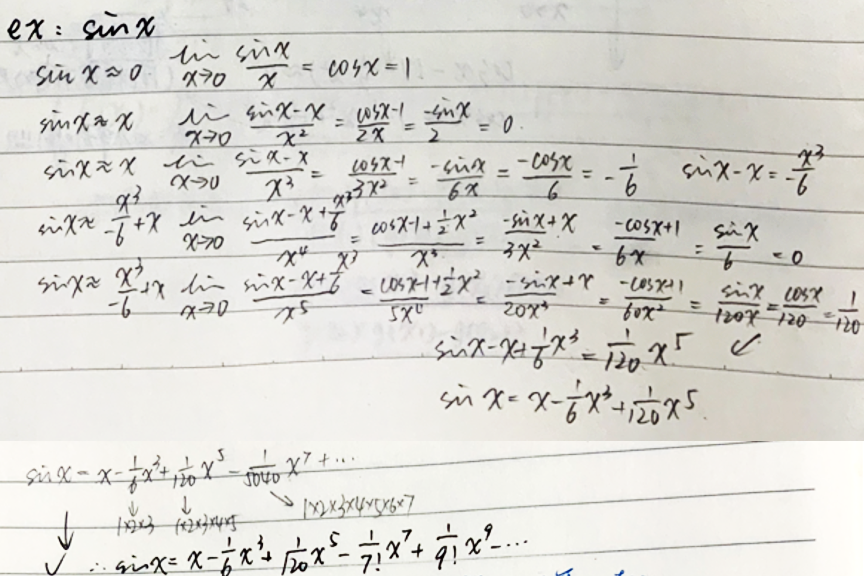 ex: sin x
sin x ≈ 0 lim x→0 sin x / x = cos x = 1
sin x ≈ x lim x→0 (sin x - x) / x² = (cos x - 1) / 2x = -sin x / 2 = 0.
sin x ≈ x lim x→0 (sin x - x) / x³ = (cos x - 1) / 3x² = -sin x / 6x = -cos x / 6 = -1/6 sin x - x = x³ / -6
sin x ≈ x³ / -6 + x lim x→0 (sin x - x + x³/6) / x⁴ = (cos x - 1 + 1/2 x²) / x³ = (-sin x + x) / 3x² = (-cos x + 1) / 6x = sin x / 6 = 0
sin x ≈ x³ / -6 + x lim x→0 (sin x - x + x³/6) / x⁵ = (cos x - 1 + 1/2 x²) / 5x⁴ = (-sin x + x) / 20x³ = (-cos x + 1) / 60x² = sin x / 120x = cos x / 120 = 1/120
sin x - x + 1/6 x³ = 1/120 x⁵ ✓
sin x = x - 1/6 x³ + 1/120 x⁵
sin x = x - 1/6 x³ + 1/120 x⁵ - 1/5040 x⁷ + ...
1×2×3 1×2×3×4×5 1×2×3×4×5×6×7
✓ ∴ sin x = x - 1/6 x³ + 1/120 x⁵ - 1/7! x⁷ + 1/9! x⁹ - ...